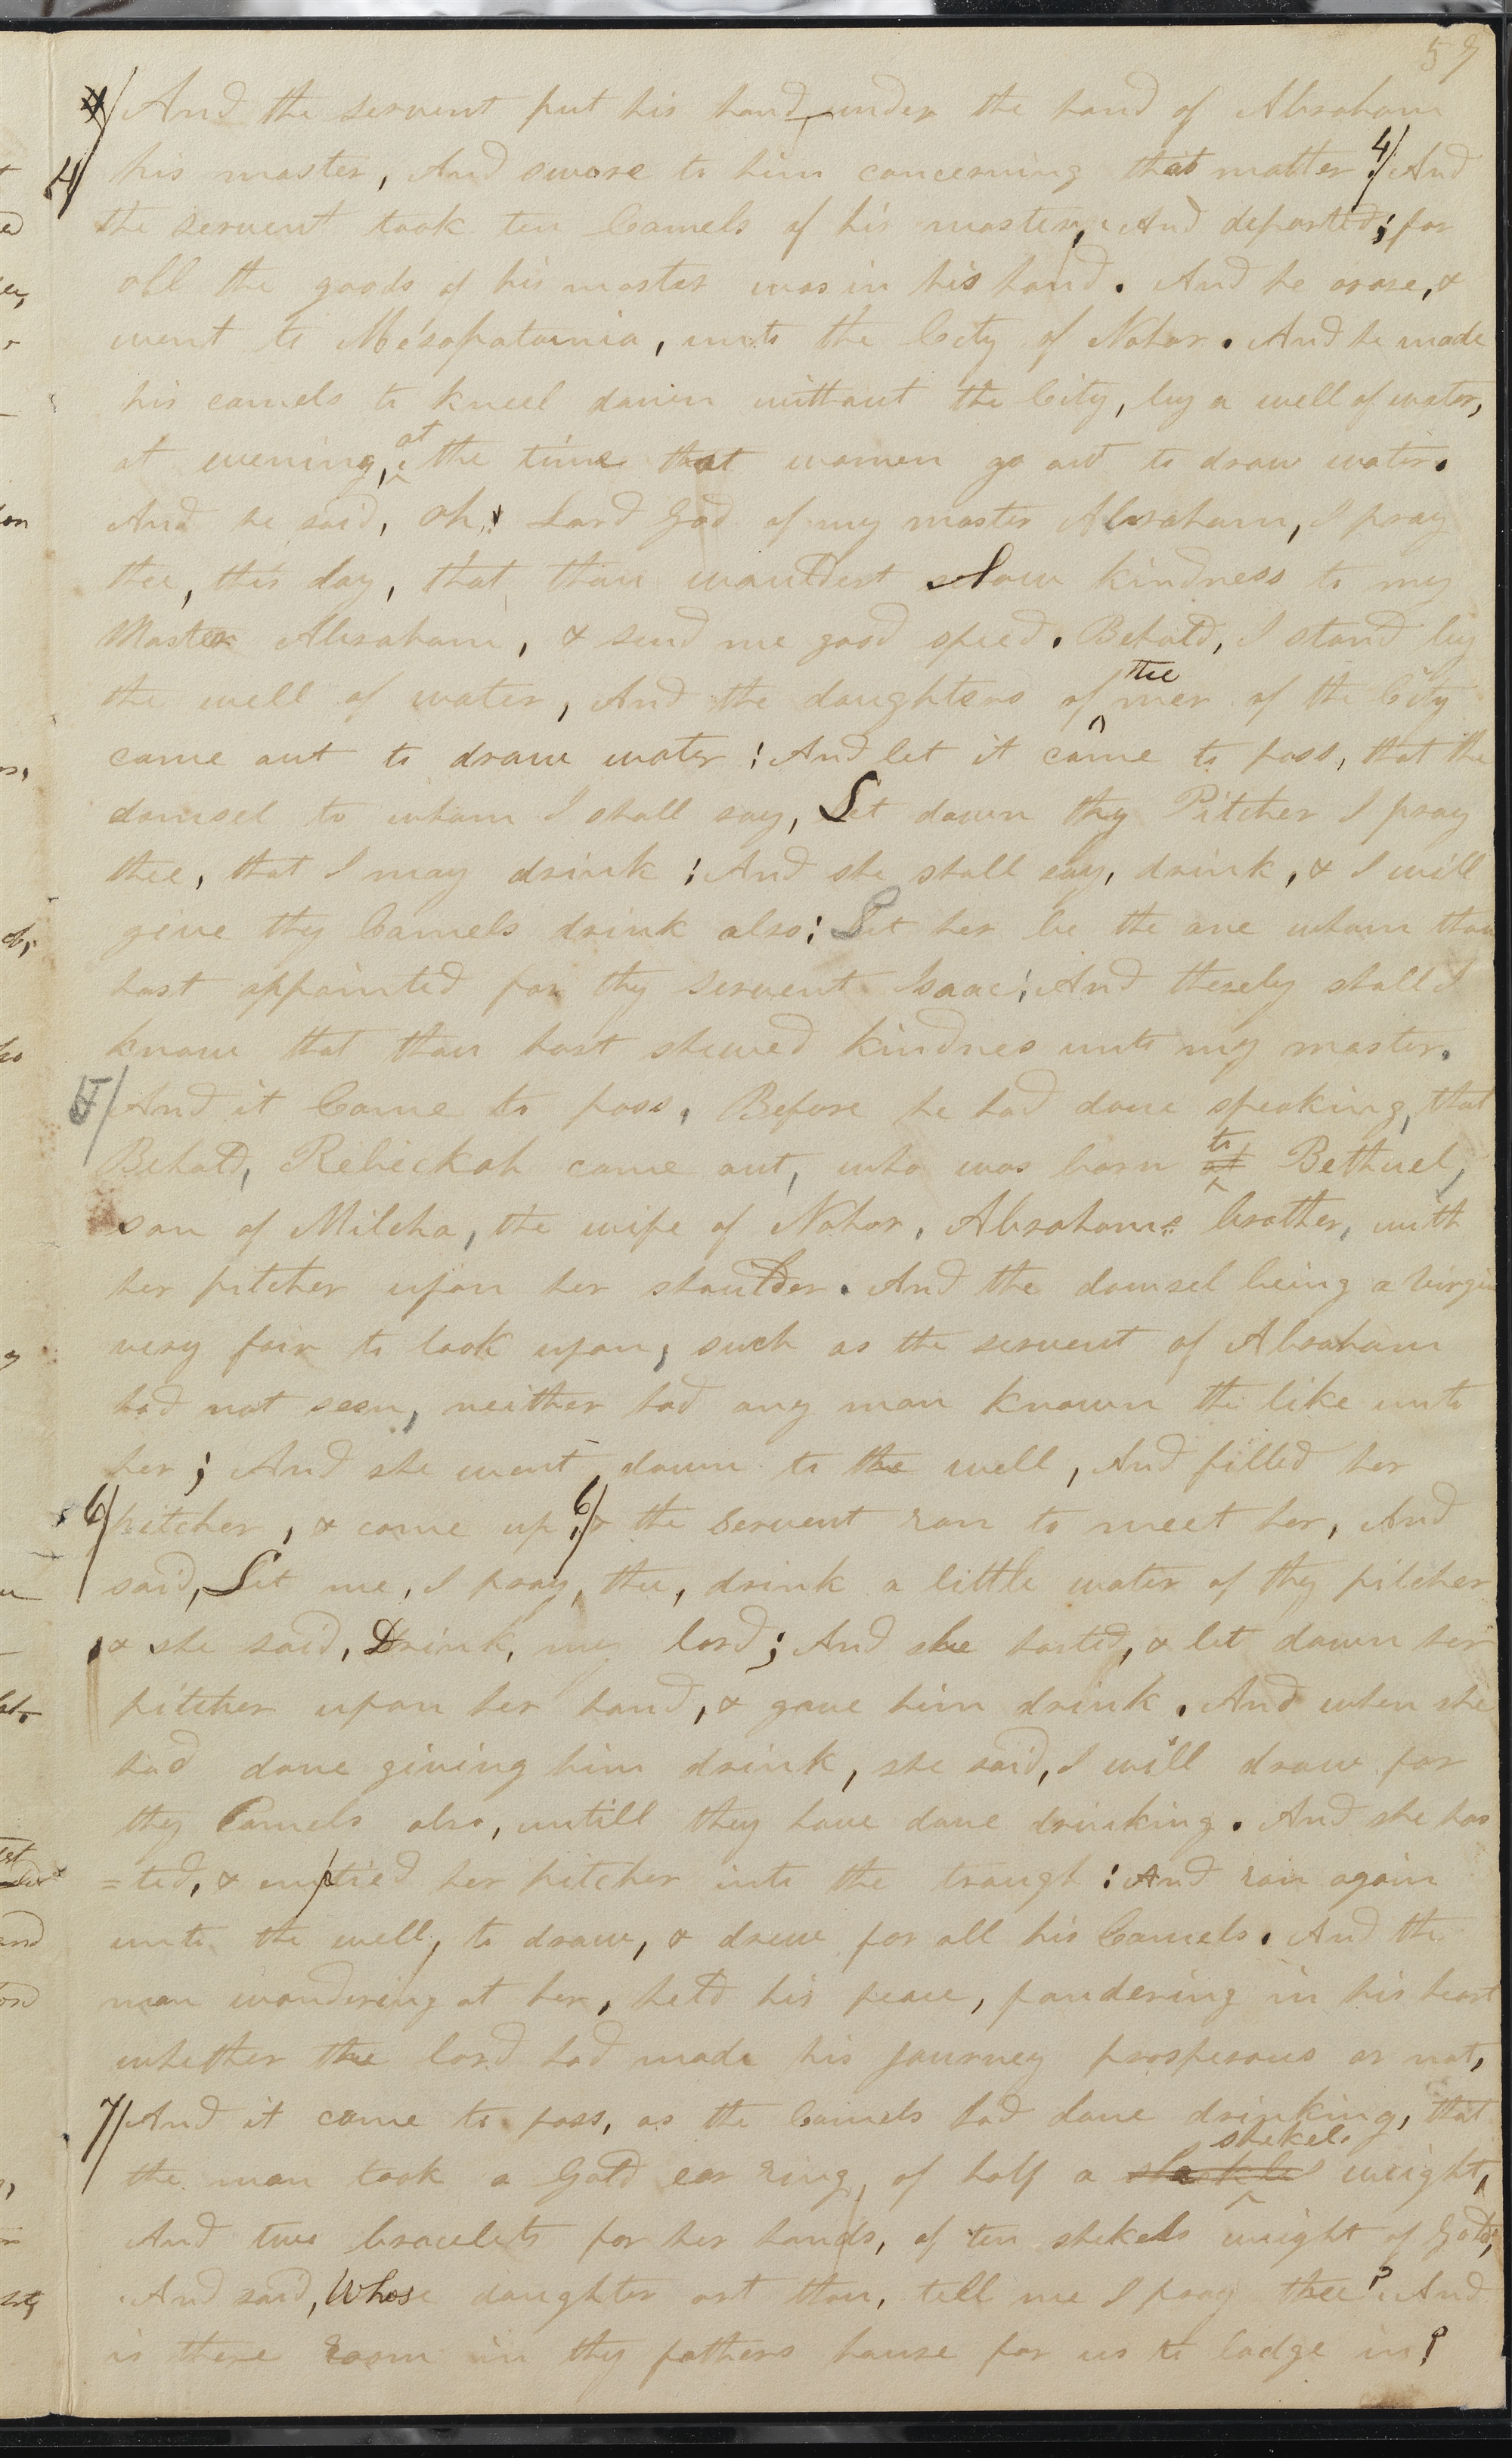 59
4/ And the servent put his hand under the hand of Abraham
4/ his master, And swore to him concerning that matter. 4/ And
the servent took ten Camels of his master, And departed; for
all the goods of his master was in his hand. And he arose, &
went to Mesopatamia, unto the City of Nahor. And he made
his camels to kneel down without the City, by a well of water,
at evening, at the time that women go out to draw water.
And he said, Oh! Lord God of my master Abraham, I pray
thee, this day, that thou wouldest show kindness to my
Master Abraham, & send me good speed. Behold, I stand by
the well of water, And the daughters of the men of the City
come out to draw water: And let it come to pass, that the
damsel to whom I shall say, Let down thy Pitcher I pray
thee, that I may drink: And she shall say, drink, & I will
give thy Camels drink also: Let her be the one whom thou
hast appointed for thy servent Isaac: And thereby shall I
know that thou hast shewed kindnes unto my master.
5/ And it Came to pass, Before he had done speaking, that
Behold, Rebeckah came out, who was born at to Bethuel,
son of Milcha, the wife of Nahor, Abrahams brother, with
her pitcher upon her shoulder. And the damsel being a virgin
very fair to look upon, such as the servent of Abraham
had not seen, neither had any man known the like unto
her; And she went down to the well, And filled her
6/ pitcher, & came up, 6/ & the Servent ran to meet her, And
said, Let me, I pray, thee, drink a little water of thy pitcher
, & she said, Drink, my lord; And she hasted, & let down her
pitcher upon her hand, & gave him drink. And when she
had done giving him drink, she said, I will draw for
thy Camels also, untill they have done drinking. And she has
=ted, & emptied her pitcher into the trough: And ran again
unto the well, to draw, & drew for all his Camels. And the
man wondering at her, held his peace, pondering in his heart
whether the lord had made his journey prosperous or not,
7/ And it came to pass, as the Camels had done drinking, that
the man took a Gold ear ring, of half a shekel weight,
And two bracelets for her hands, of ten shekels weight of Gold;
And said, Whose daughter art thou, tell me I pray thee? And
is there room in thy fathers house for us to lodge in?